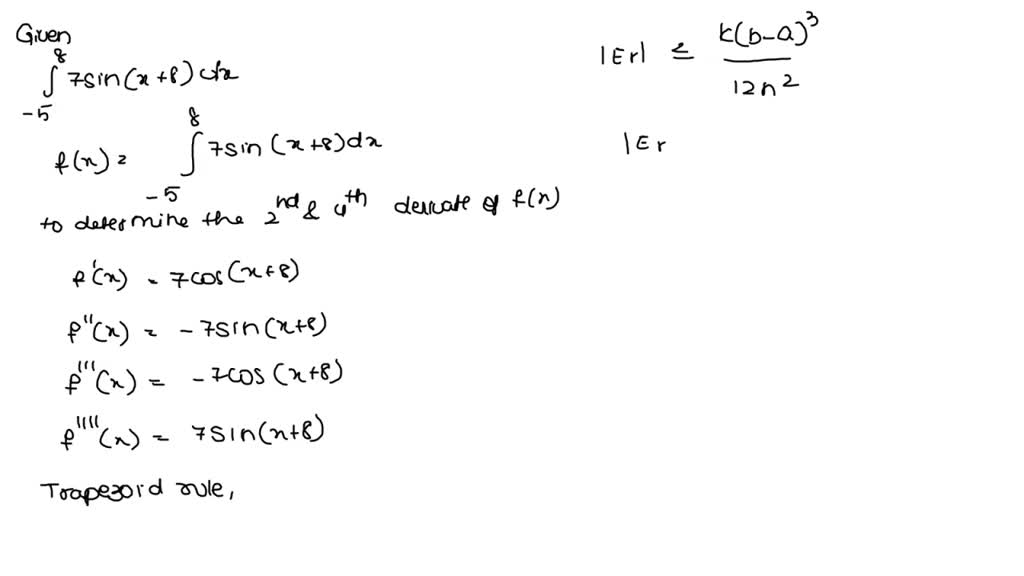 Given
∫_{-5}^{8} 7sin(x+8) dx
f(x) = ∫_{-5}^{8} 7sin(x+8)dx
to determine the 2nd & 4th derivate of f(x)
f'(x) = 7cos(x+8)
f''(x) = -7sin(x+8)
f'''(x) = -7cos(x+8)
f''''(x) = 7sin(x+8)
Trapezoid rule,
|Er| ≤ k(b-a)^3 / 12n^2
|Er